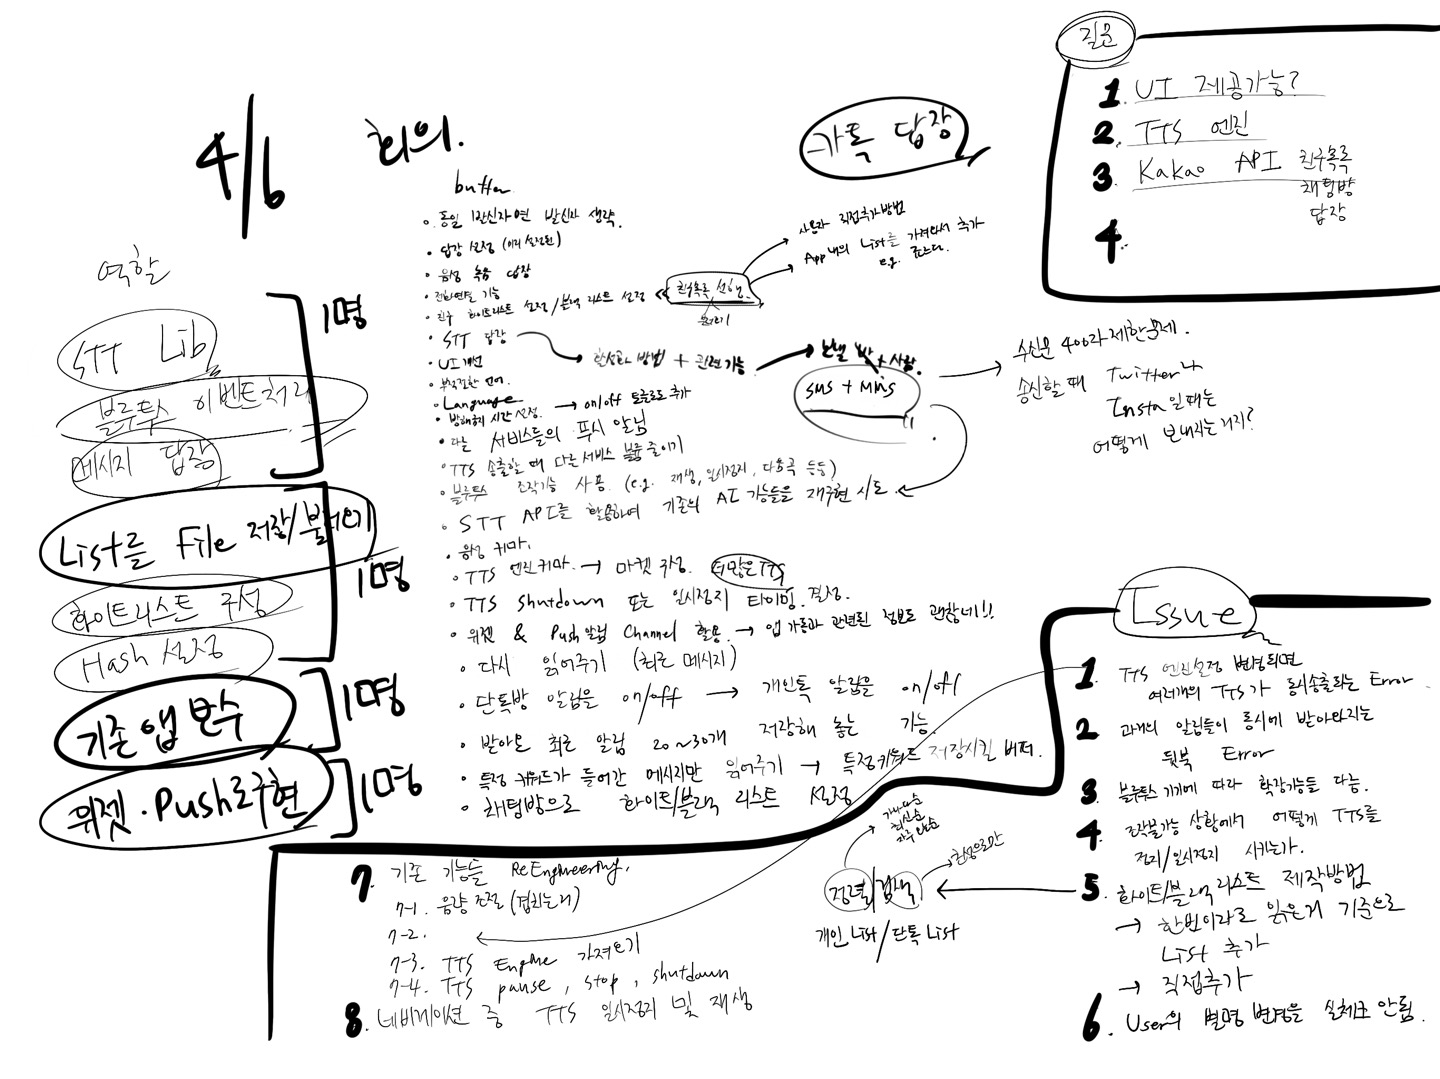 4/6 회의.
역할
STT Lib
블루투스 이벤트처리
메시지 답장
1명
List를 File 저장/불러오기
화이트리스트 구성
Hash 설정
1명
기존 앱 보수
1명
위젯·Push로구현
1명
button
· 동일 발신자면 발신자 생략.
· 답장 설정 (미리 설정된)
· 음성 녹음 답장
· 전화연결 기능
· 친구 화이트리스트 설정/블랙 리스트 설정
친구목록 선행.
사용자 직접추가방법
App내의 List를 가져와서 추가
e.g.
· STT 답장
방법 + 관련 기능
SMS + MMS
· UI 개선
· 부적절한 언어.
· Language
· 방해금지 시간 설정. → on/off 토글로도 추가
· 다른 서비스들의 푸시 알림
· TTS 송출할 때 다른 서비스 볼륨 줄이기
· 블루투스 조작기능 사용. (e.g. 재생, 일시정지, 다음곡 등등)
· STT API를 활용하여 기존의 AI 기능들을 재구현 시도
· 음성 커마.
· TTS 엔진커마. → 마켓 구성. 더많은TTS
· TTS shutdown 또는 일시정지 타이밍 결정.
· 위젯 & Push알림 Channel 활용. → 앱 가동과 관련된 정보도 괜찮네!!
· 다시 읽어주기 (최근 메시지)
· 단톡방 알림을 on/off → 개인톡 알림을 on/off
· 받아온 최근 알림 20~30개 저장해 놓는 기능.
· 특정 키워드가 들어간 메시지만 읽어주기 → 특정키워드 저장시킬 버퍼.
· 채팅방으로 화이트/블랙 리스트 설정
카톡 답장
수신은 400자제한문제.
송신할 때 Twitter나
Insta일때는
어떻게 보내지는거지?
질문
1. UI 제공가능?
2. TTS 엔진
3. Kakao API 친구목록
채팅방
답장
4.
Issue
1 TTS 엔진설정 변경되면
여러개의 TTS가 동시송출되는 Error
2 과거의 알림들이 동시에 받아와지는
뒷북 Error
3 블루투스 기기에 따라 확장기능들 다름.
4 조작불가능 상황에서 어떻게 TTS를
정지/일시정지 시키는가.
5 화이트/블랙 리스트 제작방법
→ 한번이라도 읽은거 기준으로
List 추가
→ 직접추가
정렬/검색
가나다순
최신순
개인 List/단톡 List
6. User의 별명 변경을 실체크 안됨.
7. 기존 기능들 ReEngineering.
7-1. 음량 조절 (겹치는거)
7-2.
7-3. TTS Engine 가져오기
7-4. TTS pause, stop, shutdown
8. 네비게이션 중 TTS 일시정지 및 재생